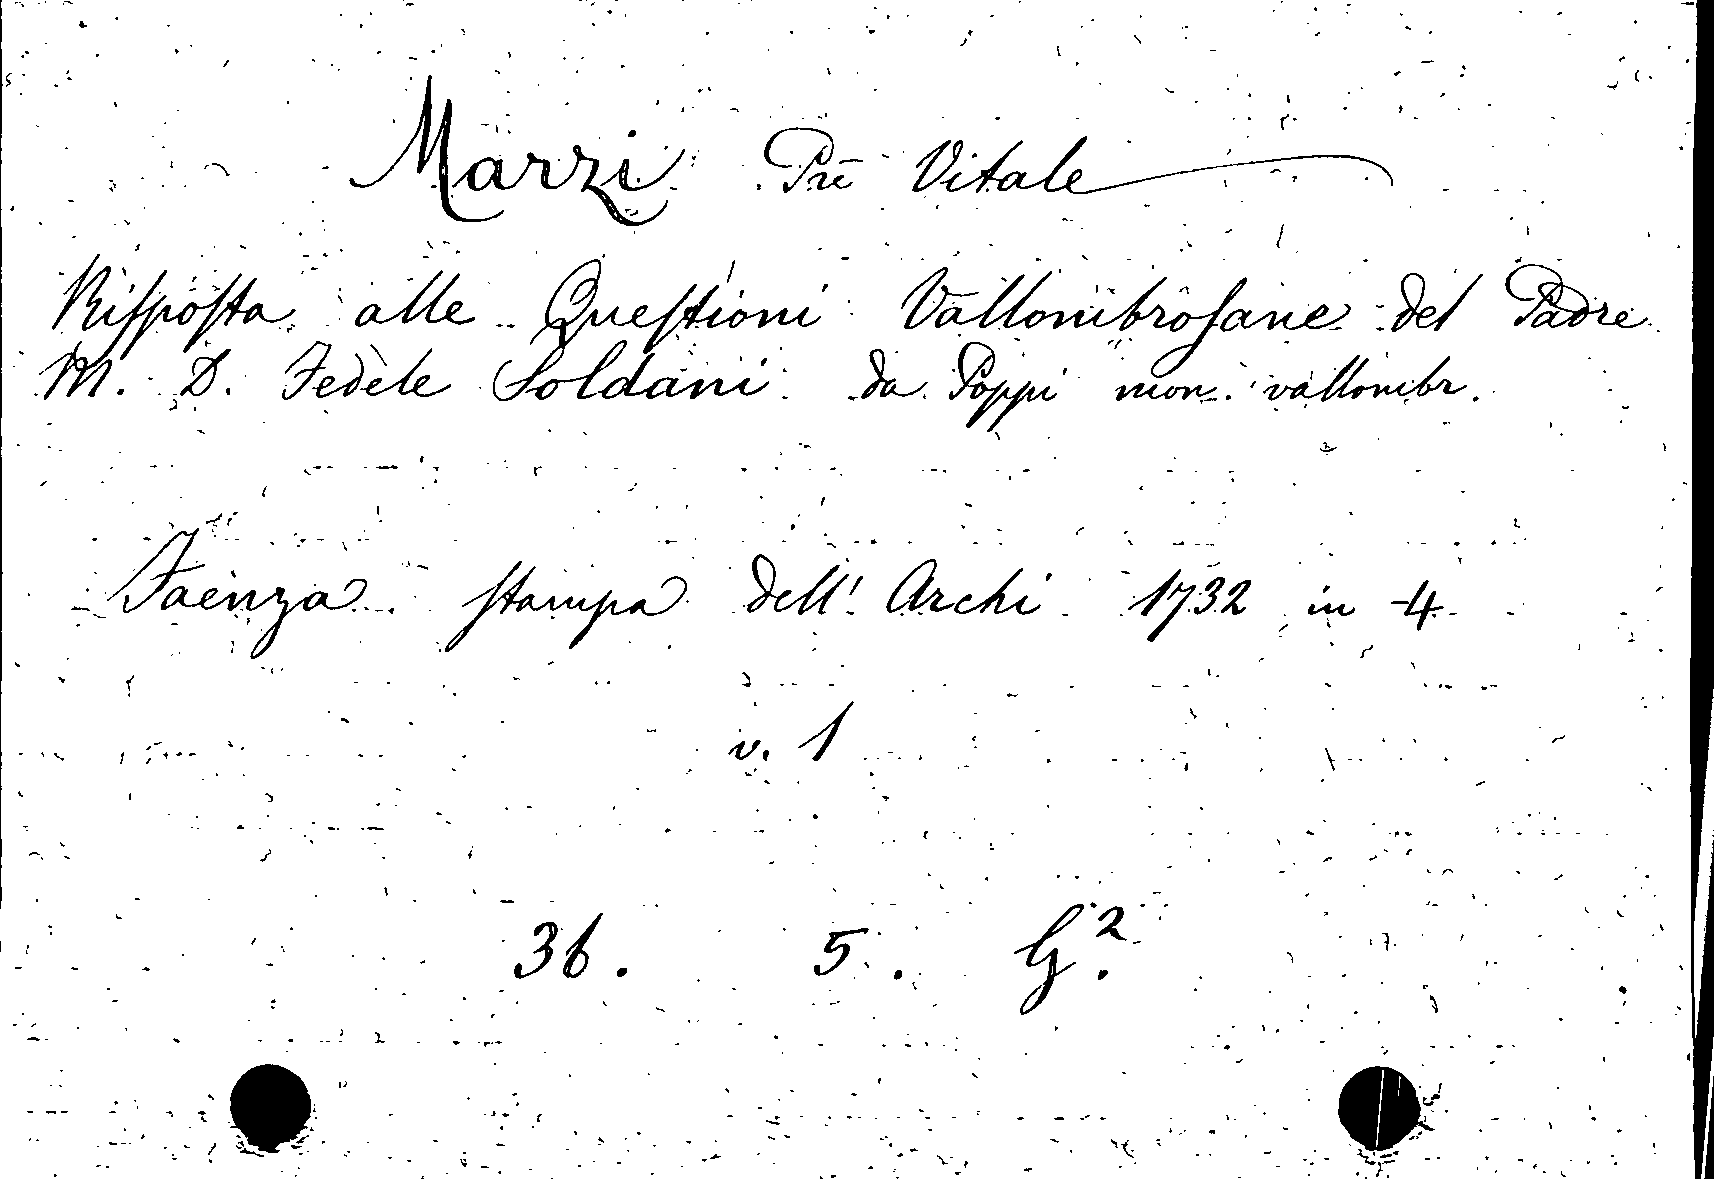 Marzi Prē Vitale
Riſpoſta alle Queſtioni Vallombroſane del Padre
M. D. Fedele Soldani da Poppi mon. vallombr.
Faenza ſtampa dell' Archi 1732 in 4
v. 1
36. 5. G².